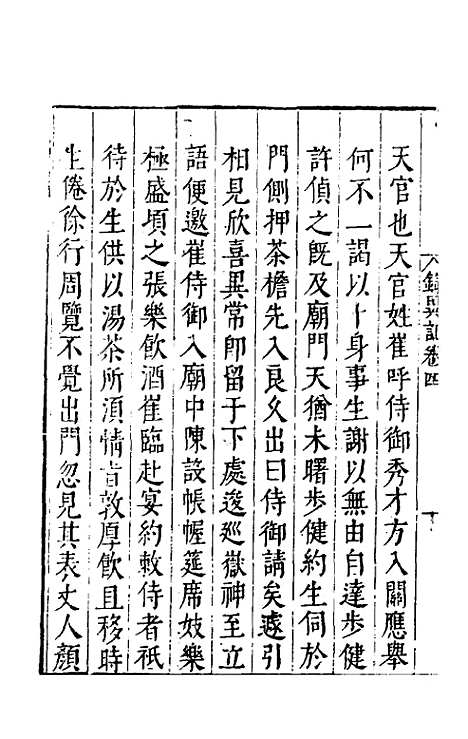 錄異記卷四
天官也天官姓崔呼侍御秀才方入關應舉
何不一謁以卜身事生謝以無由自達步健
許偵之既及廟門天猶未曙步健約生伺於
門側押茶檐先入良久出曰侍御請矣遽引
相見欣喜異常即留于下處逡巡嶽神至立
語便邀崔侍御入廟中陳設帳幄筵席妓樂
極盛頃之張樂飲酒崔臨赴宴約敕侍者祇
待於生供以湯茶所湏情旨敦厚飲且移時
生倦徐行周覽不覺出門忽見其表丈人顏